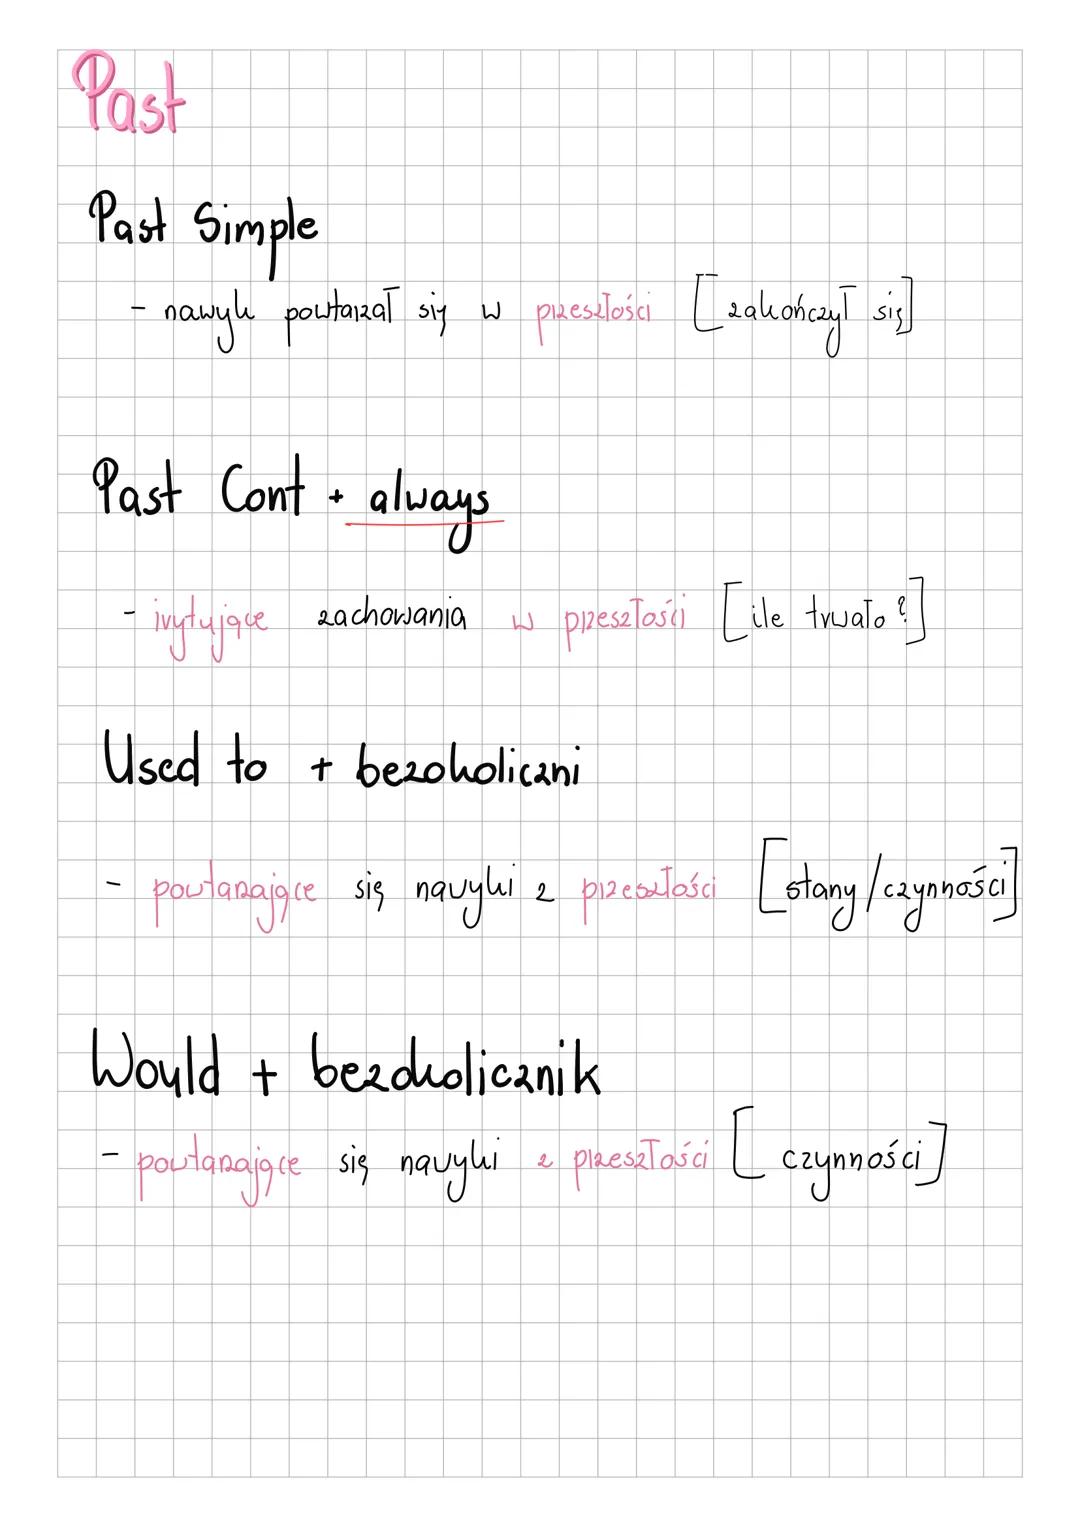 Past
Past Simple
- nawyk powtarzał się w przeszłości [zakończył się]
Past Cont + always
- irytujące zachowania w przeszłości [ile trwało?]
Used to + bezokoliczni
- powtarzające się nawyki z przeszłości [stany/czynności]
Would + bezokolicznik
- powtarzające się nawyki z przeszłości [czynności]